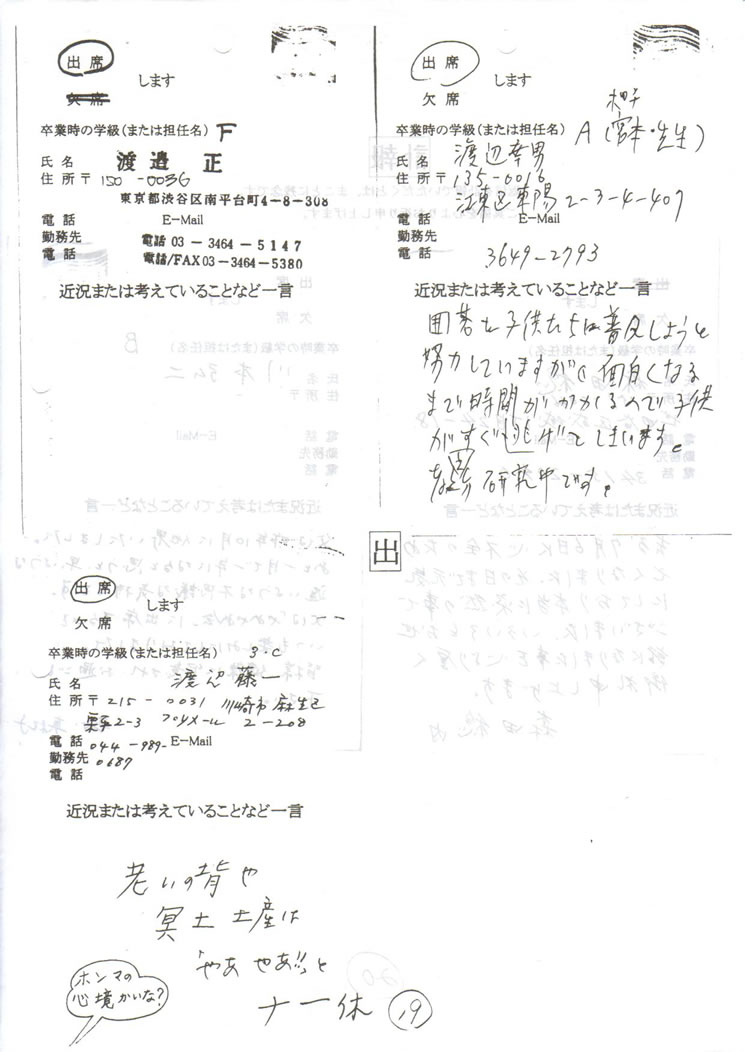 出席
します
欠席
卒業時の学級(または担任名) F
氏名 渡邉 正
住所〒 150-0036
東京都渋谷区南平台町4-8-308
電話 E-Mail
勤務先 電話 03-3464-5147
電話 電話/FAX 03-3464-5380
近況または考えていることなど一言
出席
します
欠席
卒業時の学級(または担任名) A (宮本・先生)
氏名 渡辺幸男
住所〒 135-0016
江東区東陽 2-3-4-407
電話 E-Mail
勤務先
電話 3649-2793
近況または考えていることなど一言
囲碁を子供たちに普及しようと
努力していますが、面白くなる
まで時間がかかるので子供
がすぐ逃げてしまいます。
研究中です。
出
出席
します
欠席
卒業時の学級(または担任名) 3・C
氏名 渡辺 藤一
住所〒 215-0031 川崎市麻生区
栗平2-3 2-208
電話 044-989- E-Mail
勤務先 0687
電話
近況または考えていることなど一言
老いの背や
冥土土産は
「やあ やあ!!」と
ナ一休
19
ホンマの
心境かいな?